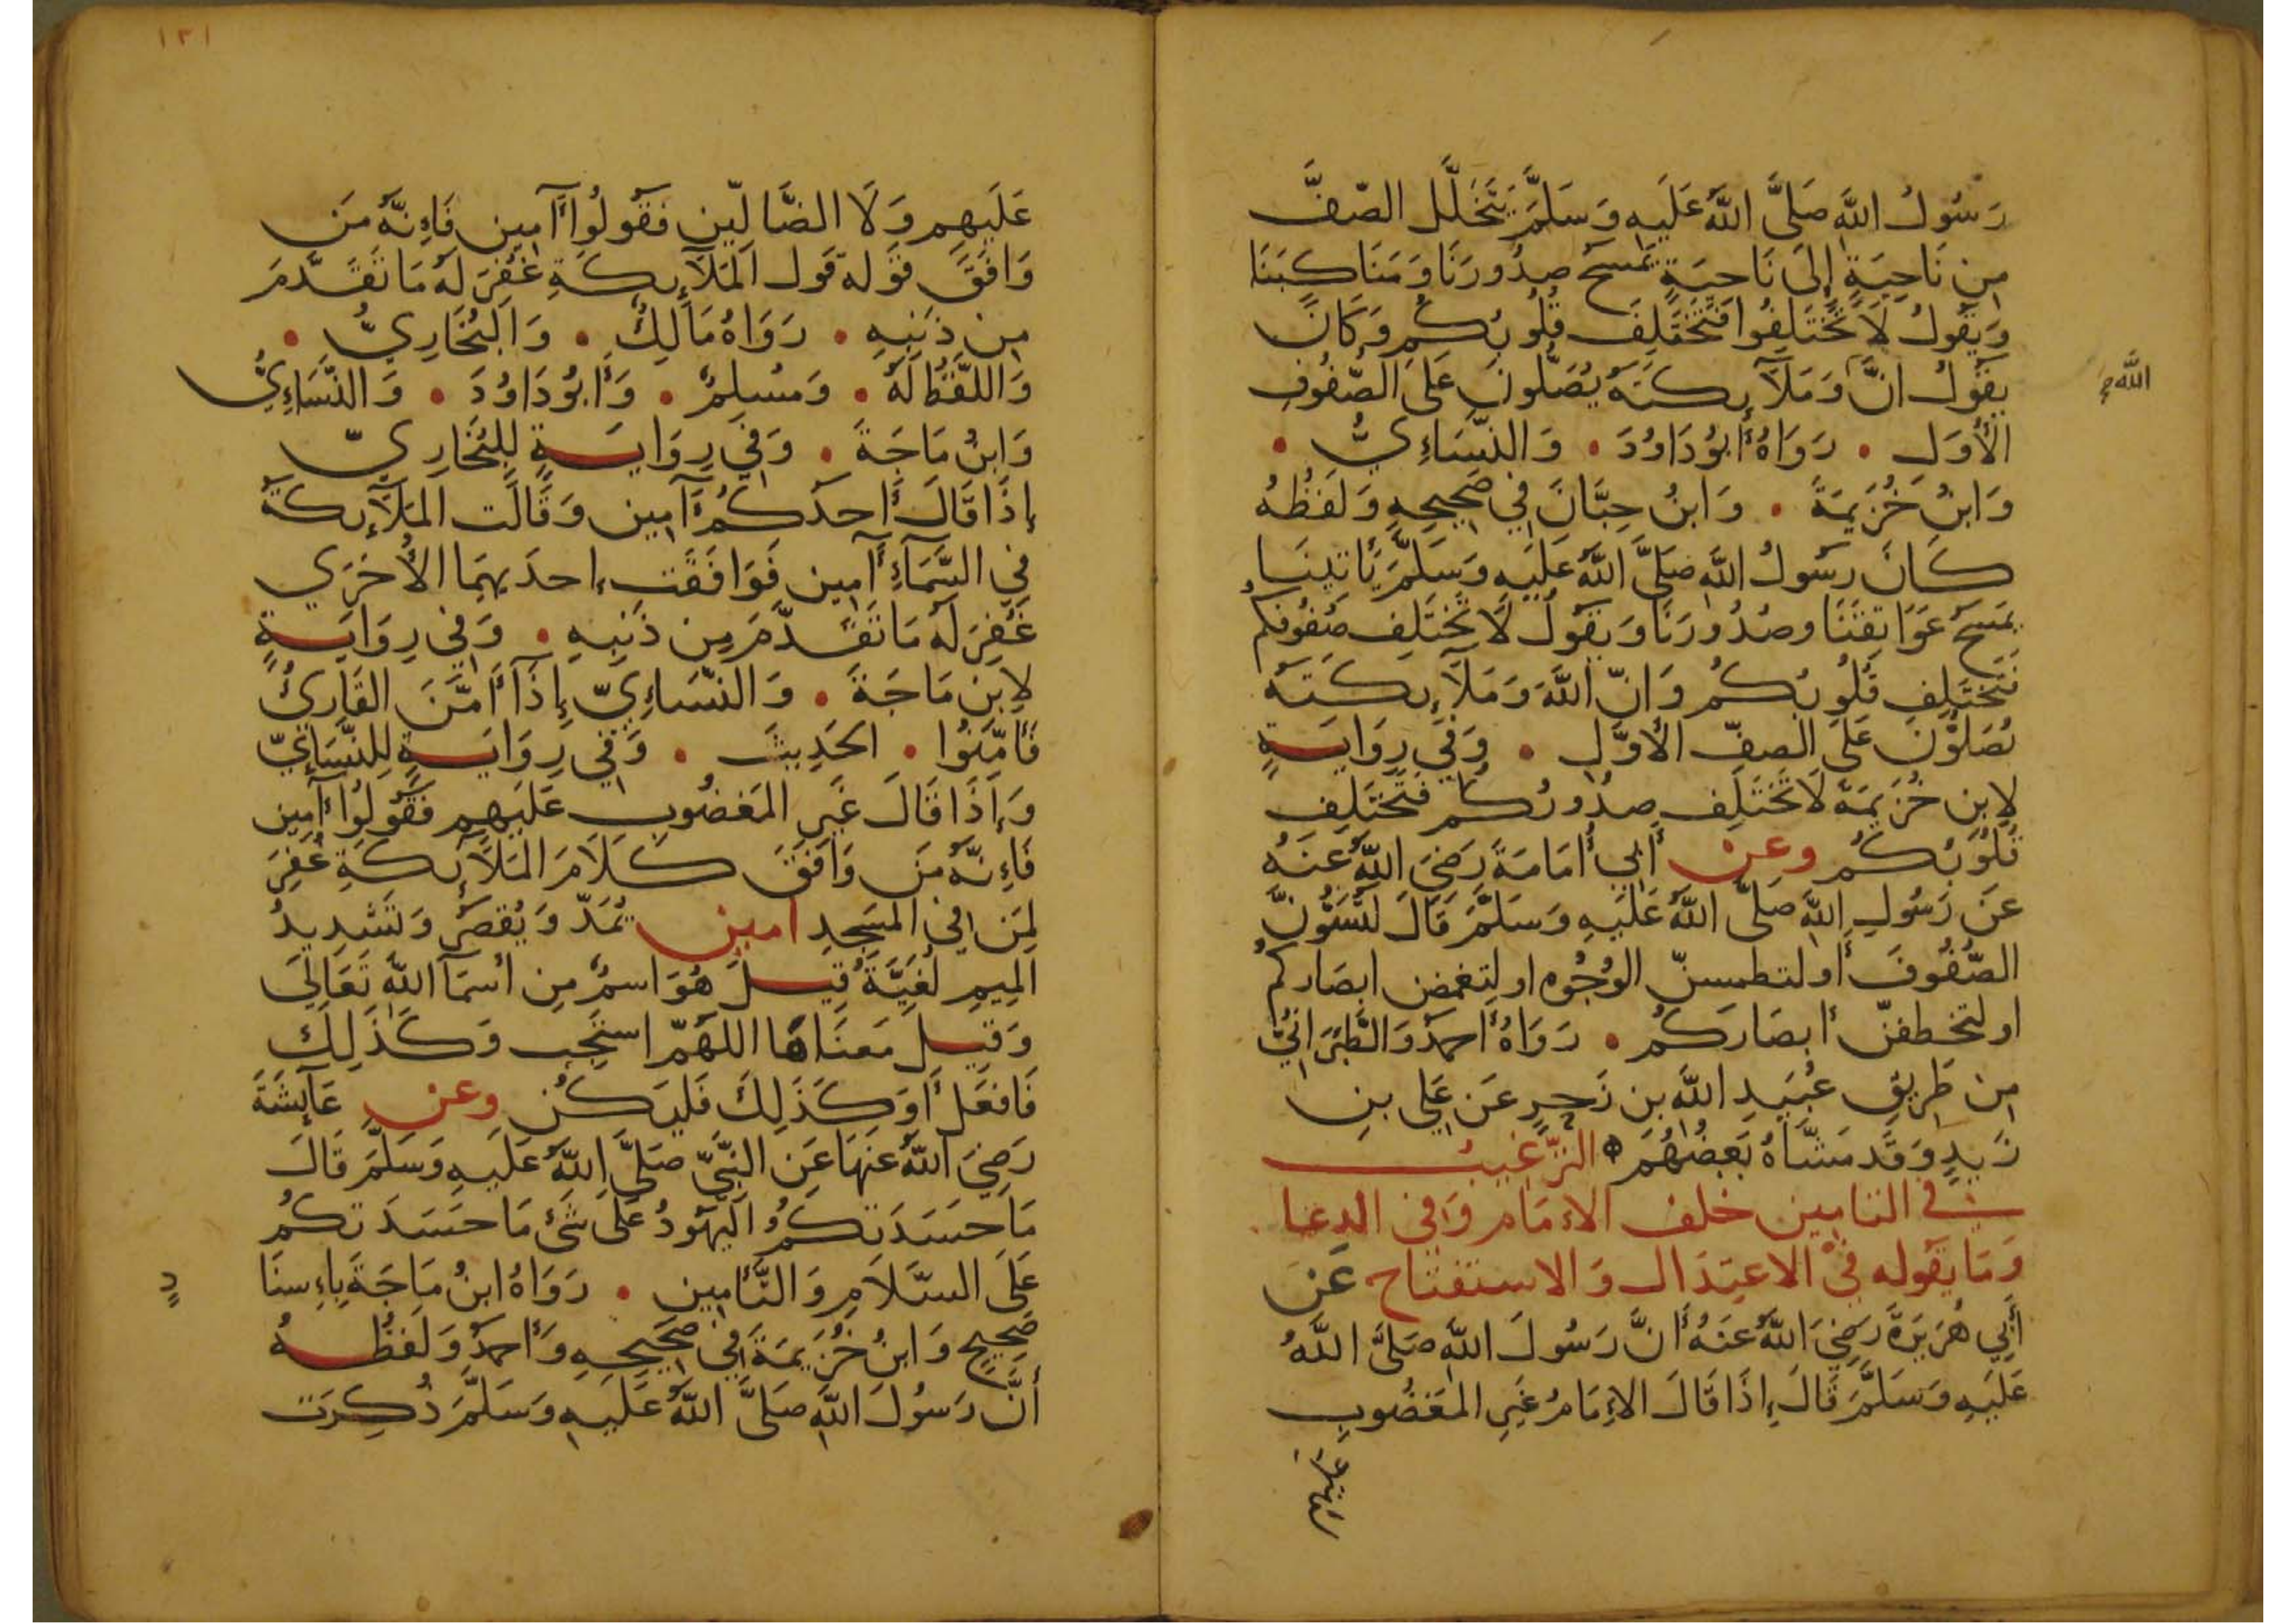 رَسُولُ اللَّهِ صَلَّى اللَّهُ عَلَيهِ وَسَلَّمَ يَتَخَلَّل الصّفَّ
مِن نَاحِيَةٍ إِلَى نَاحِيَةٍ يَمسَحُ صُدُورَنَا وَمَنَاكِبَنَا
وَيَقُولُ لَا تَختَلِفُوا فَتَختَلِفَ قُلُوبُكُم وَكَانَ
يَقُولُ انَّ وَمَلَآئِكَتَهُ يُصَلُّونَ عَلَى الصُّفُوفِ
اللَّه صح
الأُوَلِ • رَوَاهُ أَبُو دَاوُدَ • وَالنَّسَاءِيُّ •
وَابنُ خُزَيمَةَ • وَابنُ حِبَّانَ فِي صَحِيحِهِ وَلَفظُهُ
كَانَ رَسُولُ اللَّهِ صَلَّى اللَّهُ عَلَيهِ وَسَلَّمَ يَأتِينَا
يَمسَحُ عَوَاتِقَنَا وصُدُورَنَا وَيَقُولُ لَا تَختَلِف صُفُوفُكُم
فَتَختَلِفِ قُلُوبُكُم وَانّ اللَّهَ وَمَلَآئِكَتَهُ
يُصَلُّونَ عَلَى الصفّ الأَوَّلِ • وَفِي رِوَايَةٍ
لِابنِ خُزَيمَةَ لَا تَختَلِف صُدُورُكُم فَتَختَلِف
قُلُوبُكُم وعن أَبِي أُمَامَةَ رَضِيَ اللَّهُ عَنهُ
عَن رَسُولِ اللَّهِ صَلَّى اللَّهُ عَلَيهِ وَسَلَّمَ قَالَ لَتُسَوُّنَّ
الصُّفُوفَ أَو لتطمسنّ الوُجُوه او لتغمض ابصَاركُم
او لتخطفنّ أبصَارَكُم • رَوَاهُ أَحمَدُ وَالطَّبَرَانِيُّ
مِن طَرِيقِ عُبَيدِ اللَّهِ بنِ زَحرٍ عَن عَلِي بنِ
زَيدٍ وَقَد مَشَّاهُ بَعضُهُم ه الترغيب
في التامين خلف الاءِمَام وَفي الدعا
وَمَا يَقُوله في الاعتِدَال وَالاستفتَاح عَن
أَبِي هُرَيرَةَ رَضِيَ اللَّهُ عَنهُ أَنَّ رَسُولَ اللَّهِ صَلَّى اللَّهُ
عَلَيهِ وَسَلَّمَ قَالَ إِذَا قَالَ الاءِمَامُ غَيرِ المَغضُوبِ
عليهم
١٢١
عَلَيهِم وَلَا الضَّالِّينِ فَقُولُوا آمِين فَاءِنَّهُ مَن
وَافَقَ قَوله قَول المَلَآئِكَةِ غُفِرَ لَهُ مَا تَقَدَّمَ
مِن ذَنبِهِ • رَوَاهُ مَالِكٌ • وَالبُخَارِيُّ •
وَاللَّفظُ لَهُ • وَمُسلِمٌ • وَأَبُو دَاوُدَ • وَالنَّسَاءِيُّ
وَابنُ مَاجَةَ • وَفِي رِوَايَةٍ لِلبُخَارِيّ
إِذَا قَالَ أَحدُكُم آمِين وَقَالَت المَلَآئِكَةُ
فِي السَّمَاءِ آمِين فَوَافَقَت إِحدَيهِمَا الأُخرَي
غُفِرَ لَهُ مَا تَقَدَّمَ مِن ذَنبِهِ • وَفِي رِوَايَةٍ
لِابنِ مَاجَةَ • وَالنَّسَاءِيّ إِذَا أَمَّنَ القَارِئُ
فَأَمِّنُوا • الحَدِيثَ • وَفِي رِوَايَةٍ لِلنَّسَاءِيّ
وَإِذَا قَالَ غَيرِ المَغضُوبِ عَلَيهِم فَقُولُوا آمِين
فَاءِنَّهُ مَن وَافَقَ كَلَامَ المَلَآئِكَةِ غُفِرَ
لِمَن فِي المَسجِدِ آمين يُمَدّ وَيُقصَرُ وَتَشدِيدُ
المِيمِ لُغَيَّةٌ قِيلَ هُوَ اسمٌ مِن أَسمَآ اللَّهِ تَعَالَى
وَقِيل مَعنَاهَا اللَّهُمّ استَجِب وَكَذَلِكَ
فَافعَل أَو كَذَلِكَ فَليَكُن وعن عَآيِشَةَ
رَضِيَ اللَّهُ عَنهَا عَنِ النَّبِيِّ صَلَّى اللَّهُ عَلَيهِ وَسَلَّمَ قَالَ
مَا حَسَدَتكُمُ اليَهُودُ عَلَى شَئٍ مَا حَسَدَتكُم
عَلَى السَّلَامِ وَالتَّأمِينِ • رَوَاهُ ابنُ مَاجَةَ بِاءِسنَا
دٍ
صَحِيحٍ وَابنُ خُزَيمَةَ فِي صَحِيحِهِ وَأَحمَدُ وَلَفظُهُ
أَنَّ رَسُولَ اللَّهِ صَلَّى اللَّهُ عَلَيهِ وَسَلَّمَ ذُكِرَت